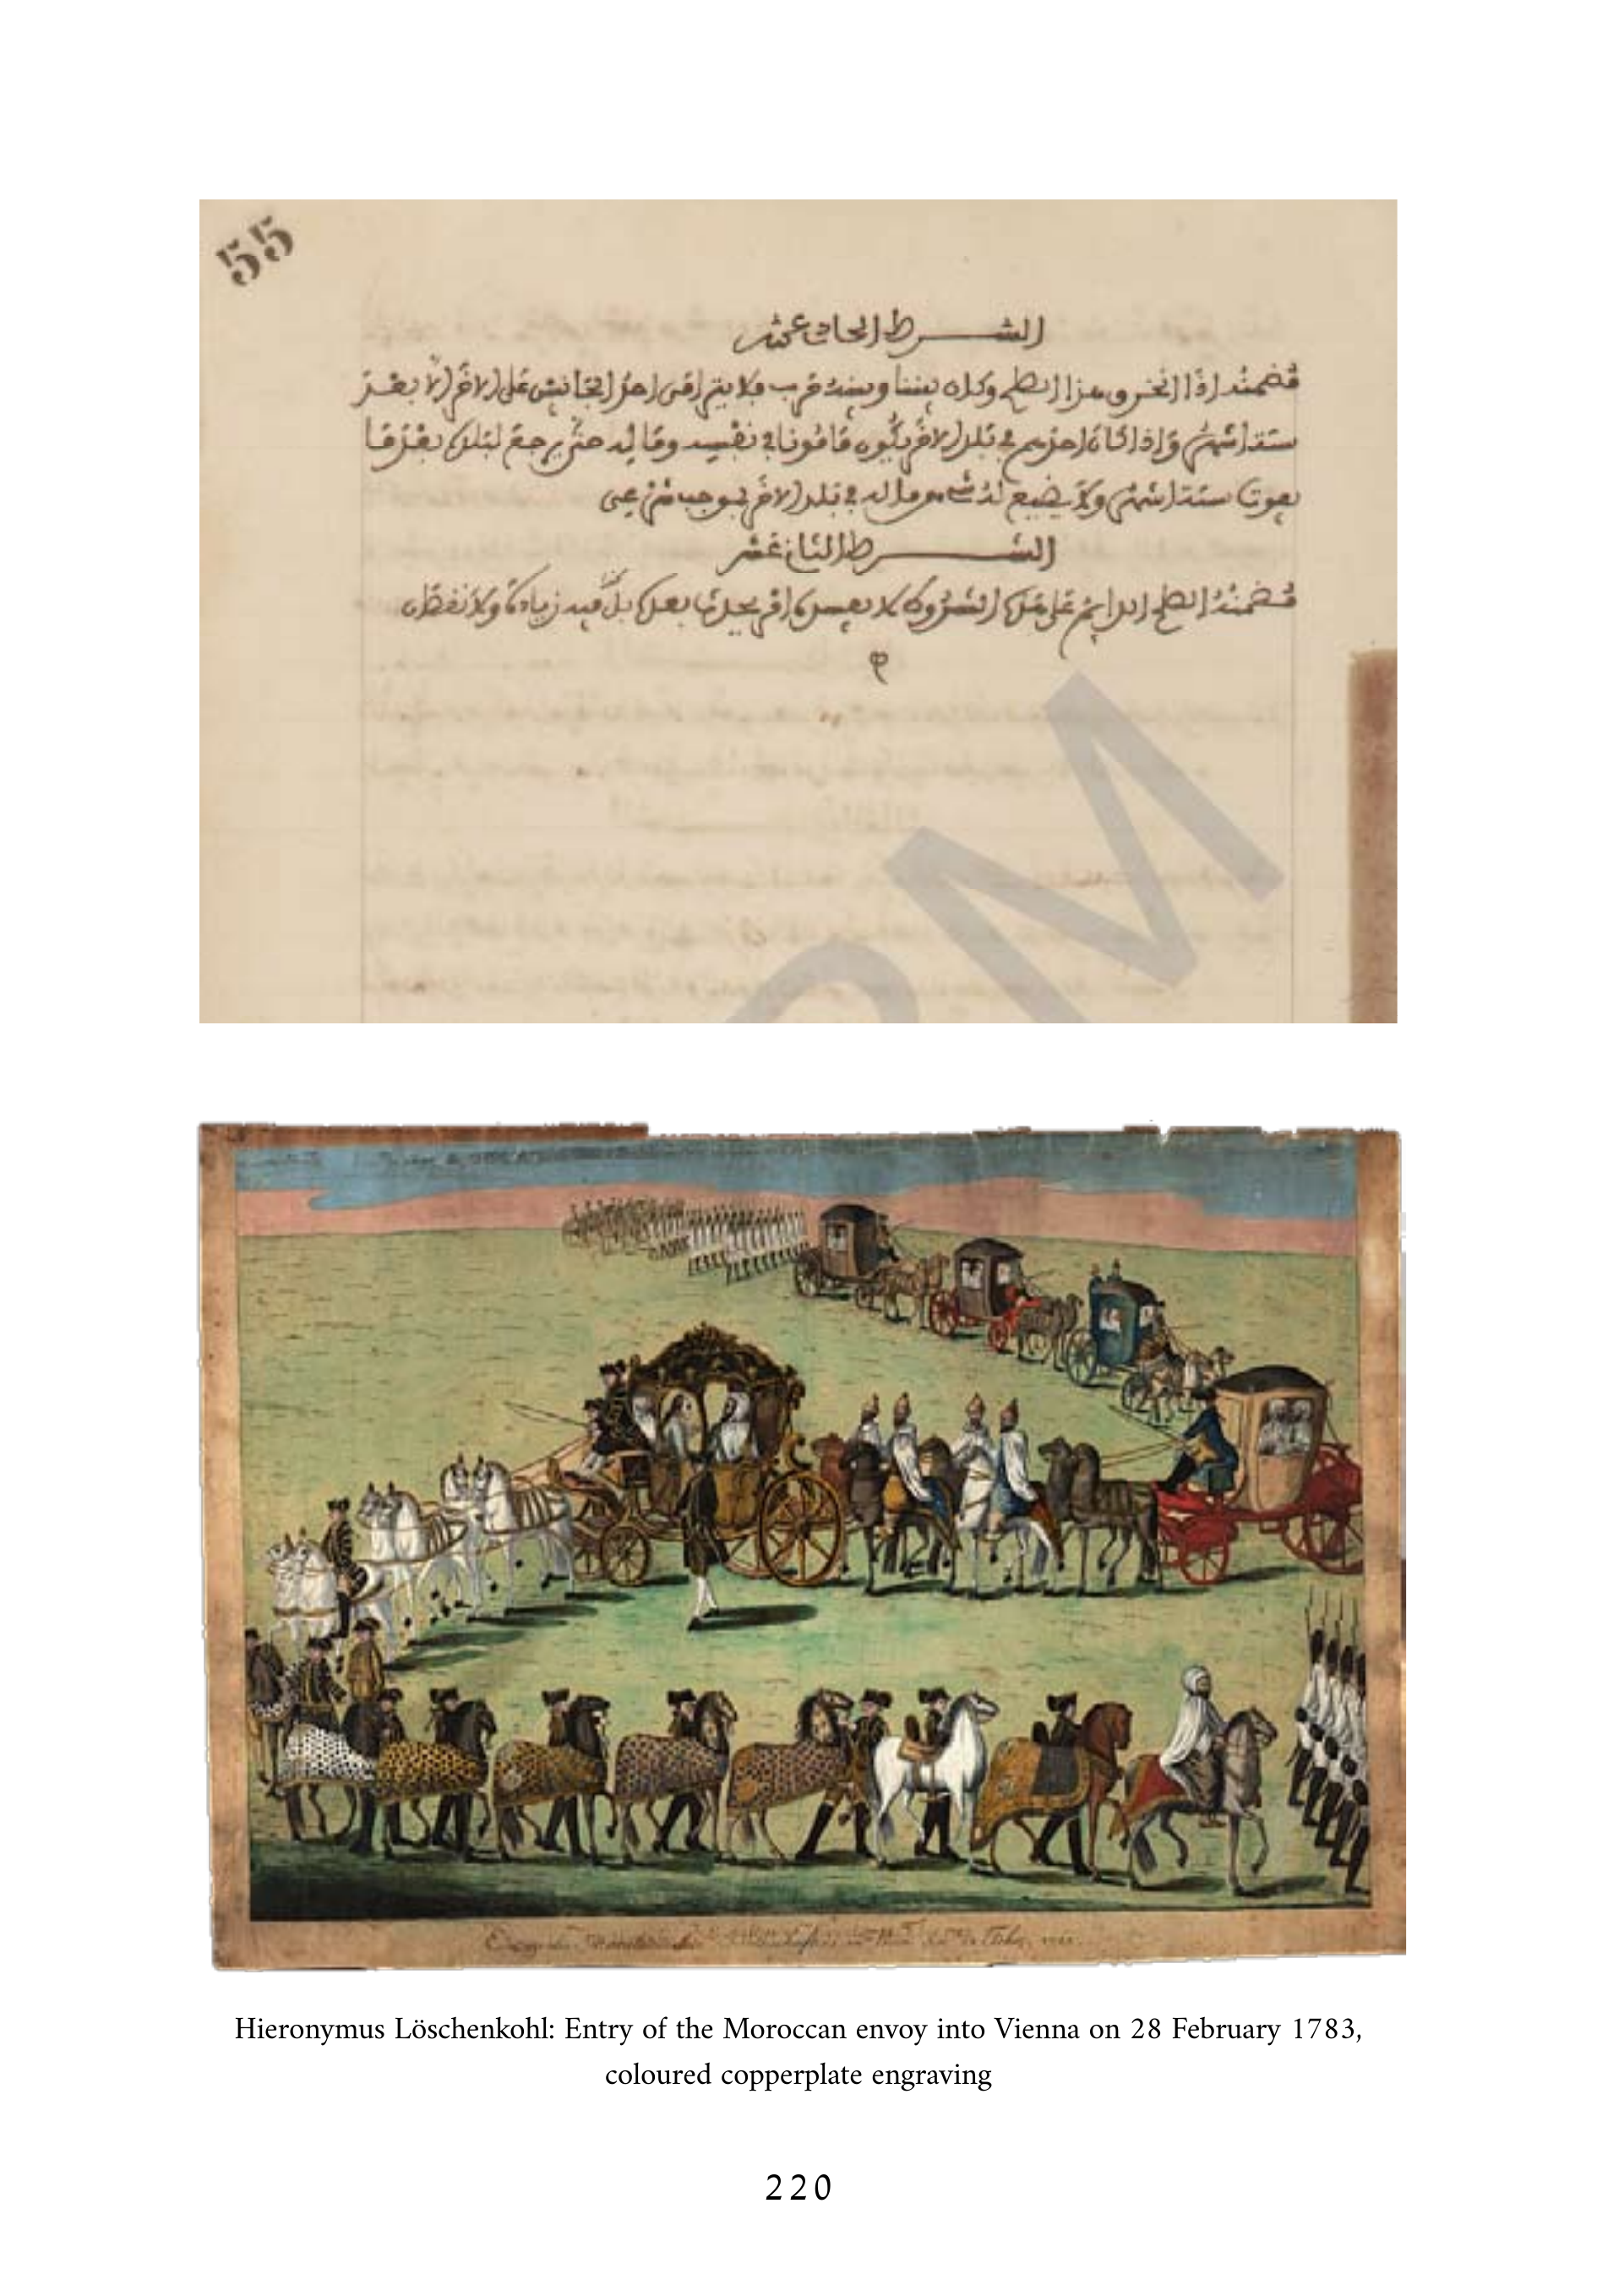 55
الشرط الحادي عشر
مضمنه اذا انخرم هذا الصلح وكان بيننا وبينه حرب فلا يترامى احد الجانبين على الاخر الا بعد
ستة اشهر واذا كان احدهم في بلد الاخر يكون مامونا في نفسه وماله حتى يرجع لبلده بعد ما
يفوت ستة اشهر ولا يضيع له شيء من ماله في بلد الاخر بوجه شرعي
الشرط الثاني عشر
مضمنه الصلح الدايم على هذه الشروط لا يفسده امر يحدث بعده بلا فيه زيادة ولا نقصان
M
Hieronymus Löschenkohl: Entry of the Moroccan envoy into Vienna on 28 February 1783,
coloured copperplate engraving
220